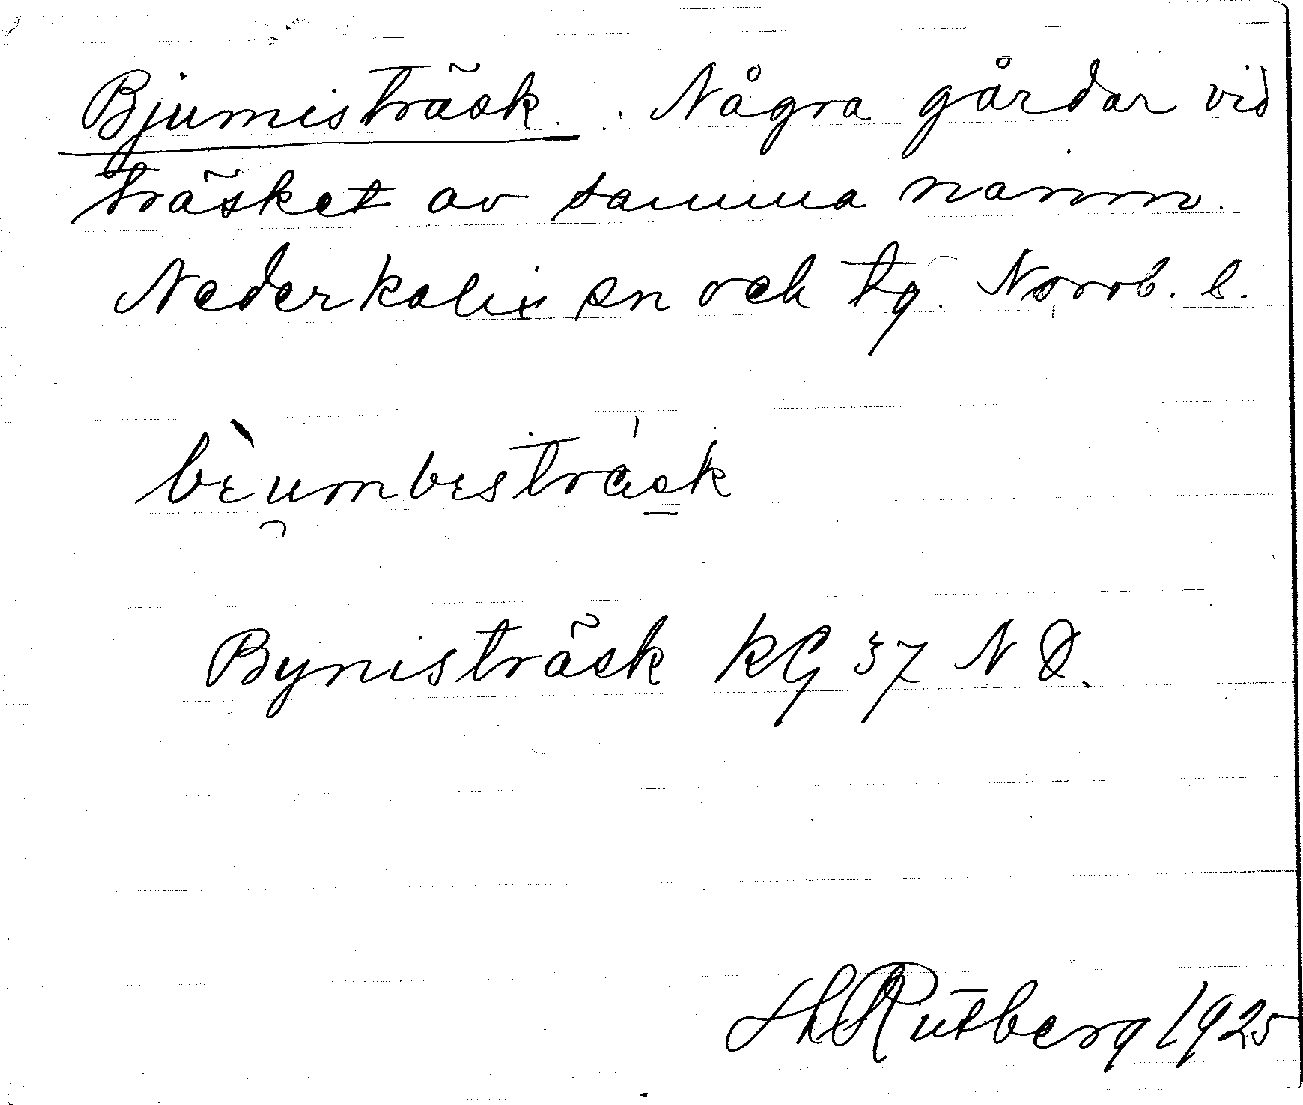 Bjumisträsk. Några gårdar vid
träsket av samma namn.
Nederkalix sn och tg. Norrb. l.
bèumbesträsk
Bynisträsk KG 37 N D.
Rutberg 1925